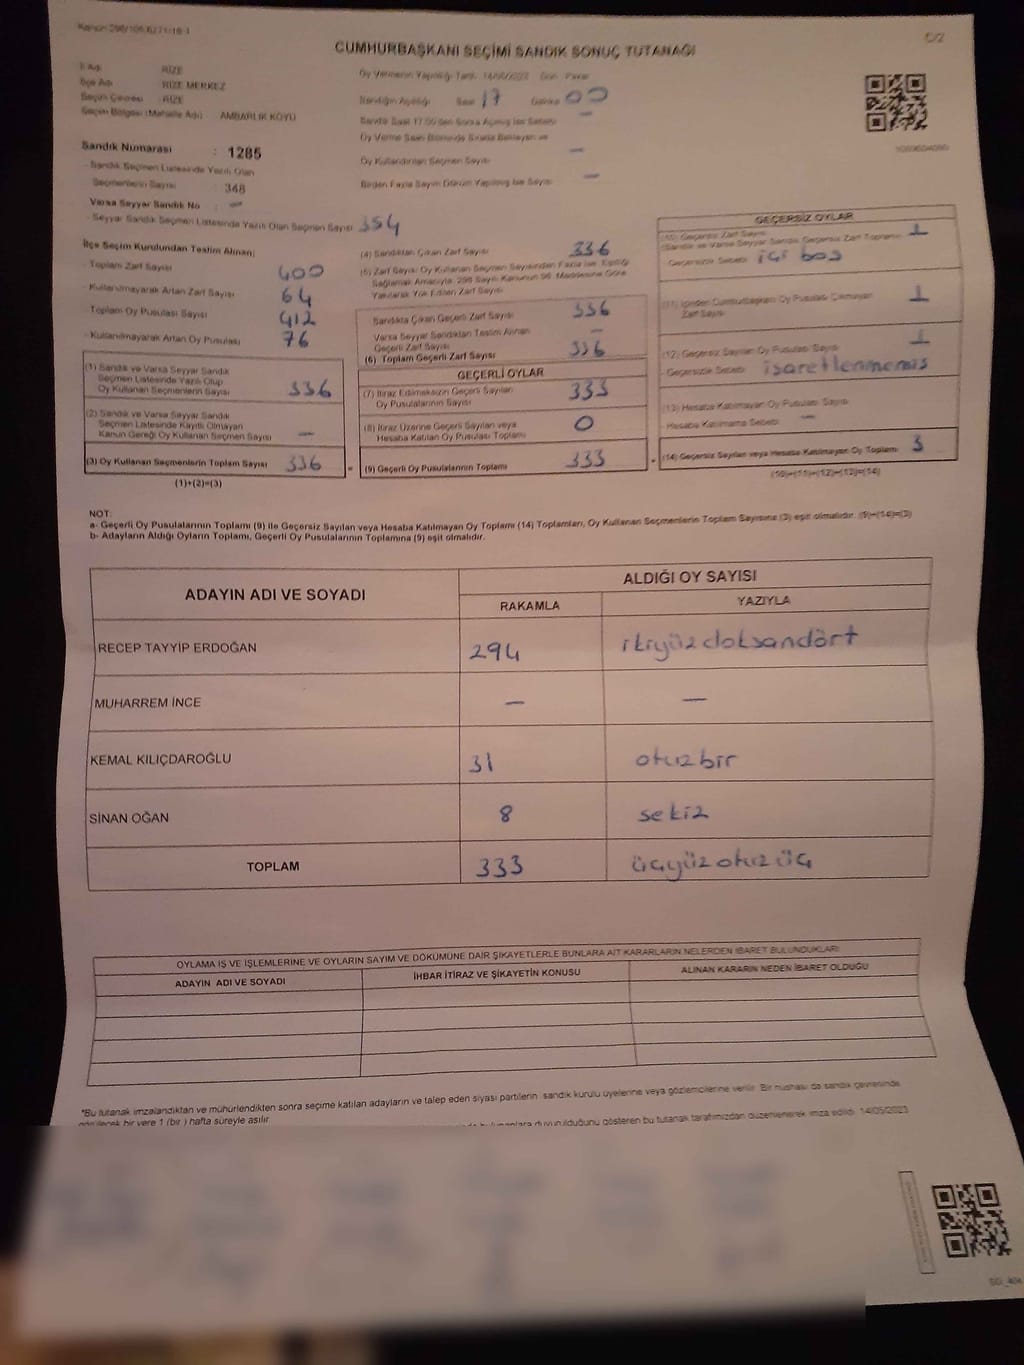 CUMHURBAŞKANI SEÇİMİ SANDIK SONUÇ TUTANAĞI
İl Adı RİZE
İlçe Adı RİZE MERKEZ
Seçim Çevresi : RİZE
Seçim Bölgesi (Mahalle Adı) : AMBARLIK KÖYÜ
Sandık Numarası : 1285
- Sandık Seçmen Listesinde Yazılı Olan
Seçmenlerin Sayısı : 348
Varsa Seyyar Sandık No : —
- Seyyar Sandık Seçmen Listesinde Yazılı Olan Seçmen Sayısı 354
Oy Vermenin Yapıldığı Tarih 14/05/2023 Gün : Pazar
Sandığın Açıldığı Saat 17 Dakika 00
Sandık Saat 17.00'den Sonra Açılmış İse Sebebi —
Oy Verme Saati Bitiminde Sırada Bekleyen ve
Oy Kullandırılan Seçmen Sayısı —
Birden Fazla Sayım Döküm Yapılmış İse Sayısı —
İlçe Seçim Kurulundan Teslim Alınan;
- Toplam Zarf Sayısı 400
- Kullanılmayarak Artan Zarf Sayısı 64
- Toplam Oy Pusulası Sayısı 412
- Kullanılmayarak Artan Oy Pusulası 76
(1) Sandık ve Varsa Seyyar Sandık
Seçmen Listesinde Yazılı Olup
Oy Kullanan Seçmenlerin Sayısı 336
(2) Sandık ve Varsa Seyyar Sandık
Seçmen Listesinde Kayıtlı Olmayan
Kanun Gereği Oy Kullanan Seçmen Sayısı —
(3) Oy Kullanan Seçmenlerin Toplam Sayısı 336
(1)+(2)=(3)
(4) Sandıktan Çıkan Zarf Sayısı 336
(5) Zarf Sayısı Oy Kullanan Seçmen Sayısından Fazla İse, Eşitliği
Sağlamak Amacıyla, 298 Sayılı Kanunun 98. Maddesine Göre
Yakılarak Yok Edilen Zarf Sayısı
Sandıkta Çıkan Geçerli Zarf Sayısı 336
Varsa Seyyar Sandıktan Teslim Alınan
Geçerli Zarf Sayısı —
(6) Toplam Geçerli Zarf Sayısı 336
GEÇERLİ OYLAR
(7) İtiraz Edilmeksizin Geçerli Sayılan
Oy Pusulalarının Sayısı 333
(8) İtiraz Üzerine Geçerli Sayılan veya
Hesaba Katılan Oy Pusulası Toplamı 0
= (9) Geçerli Oy Pusulalarının Toplamı 333
GEÇERSİZ OYLAR
(10) Geçersiz Zarf Sayısı
(Sandık ve Varsa Seyyar Sandık Geçersiz Zarf Toplamı) 1
- Geçersizlik Sebebi içi boş
(11) İçinden Cumhurbaşkanı Oy Pusulası Çıkmayan
Zarf Sayısı 1
(12) Geçersiz Sayılan Oy Pusulası Sayısı 1
- Geçersizlik Sebebi işaretlenmemiş
(13) Hesaba Katılmayan Oy Pusulası Sayısı
- Hesaba Katılmama Sebebi —
+ (14) Geçersiz Sayılan veya Hesaba Katılmayan Oy Toplamı 3
(10)+(11)+(12)+(13)=(14)
NOT:
a- Geçerli Oy Pusulalarının Toplamı (9) ile Geçersiz Sayılan veya Hesaba Katılmayan Oy Toplamı (14) Toplamları, Oy Kullanan Seçmenlerin Toplam Sayısına (3) eşit olmalıdır. (9)+(14)=(3)
b- Adayların Aldığı Oyların Toplamı, Geçerli Oy Pusulalarının Toplamına (9) eşit olmalıdır.
ADAYIN ADI VE SOYADI ALDIĞI OY SAYISI
RAKAMLA YAZIYLA
RECEP TAYYİP ERDOĞAN 294 ikiyüzdoksandört
MUHARREM İNCE — —
KEMAL KILIÇDAROĞLU 31 otuzbir
SİNAN OĞAN 8 sekiz
TOPLAM 333 üçyüzotuzüç
OYLAMA İŞ VE İŞLEMLERİNE VE OYLARIN SAYIM VE DÖKÜMÜNE DAİR ŞİKAYETLERLE BUNLARA AİT KARARLARIN NELERDEN İBARET BULUNDUKLARI
ADAYIN ADI VE SOYADI İHBAR İTİRAZ VE ŞİKAYETİN KONUSU ALINAN KARARIN NEDEN İBARET OLDUĞU
*Bu tutanak imzalandıktan ve mühürlendikten sonra seçime katılan adayların ve talep eden siyasi partilerin sandık kurulu üyelerine veya gözlemcilerine verilir. Bir nüshası da sandık çevresinde
görülecek bir yere 1 (bir) hafta süreyle asılır.
duyurulduğunu gösteren bu tutanak tarafımızdan düzenlenerek imza edildi. 14/05/2023